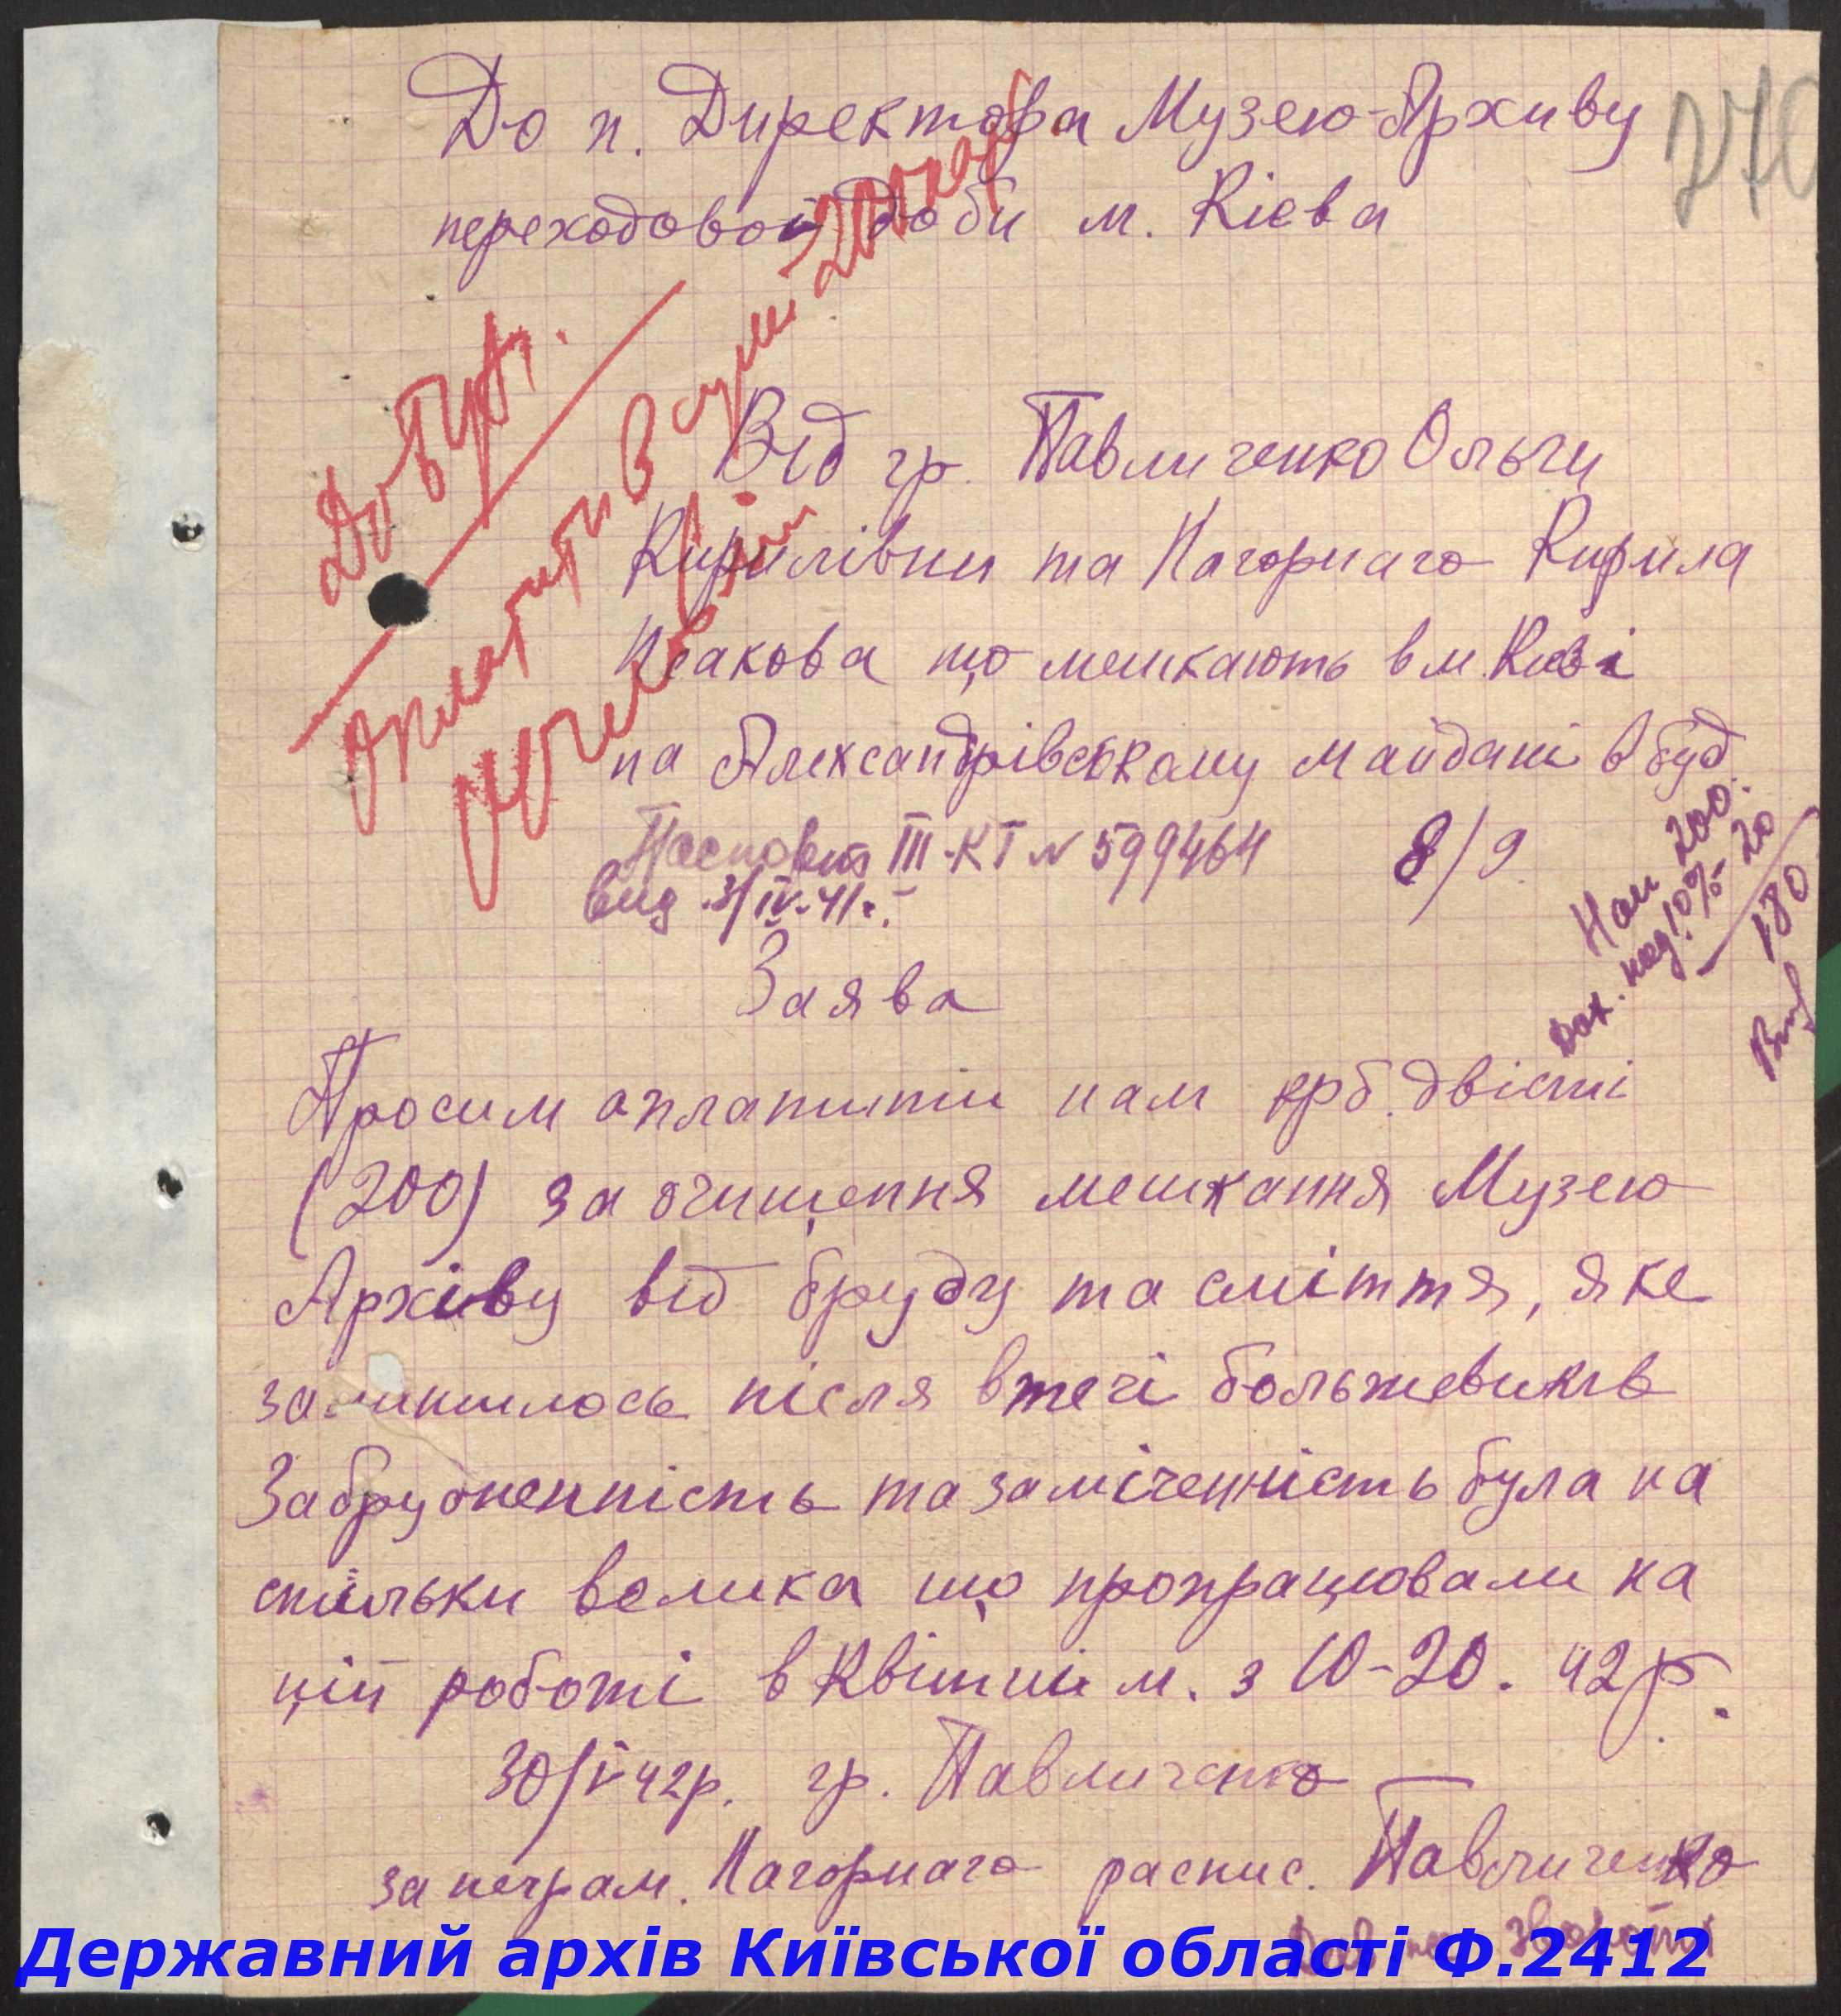 До п. Директора Музею-Архиву
переходовой доби м. Кієва
270
До бухг.
оплатити в сумі 200 карб.
Від гр. Павличенко Ольги
Кирилівни та Нагорнаго Кирила
що мешкають в м. Киеві
на Александрівському майдані в буд
8/9.
Паспорт III-КТ № 599464
вид. 3/IV-41 г.
Нач 200.
Дох. под. 10% 20
180
Заява
Просим оплатити нам крб. двісті
(200) за очищення мешкання Музею
Архіву від бруду та сміття, яке
залишилось після втечі большевиків
Забрудненність та заміченність була на
стільки велика що пропрацювали на
ціп роботі в Квітні м. з 10-20. 42 р.
30/V 42 р. гр. Павличенко
за неграм. Нагорнаго распис. Павличенко
Державний архів Київської області Ф.2412